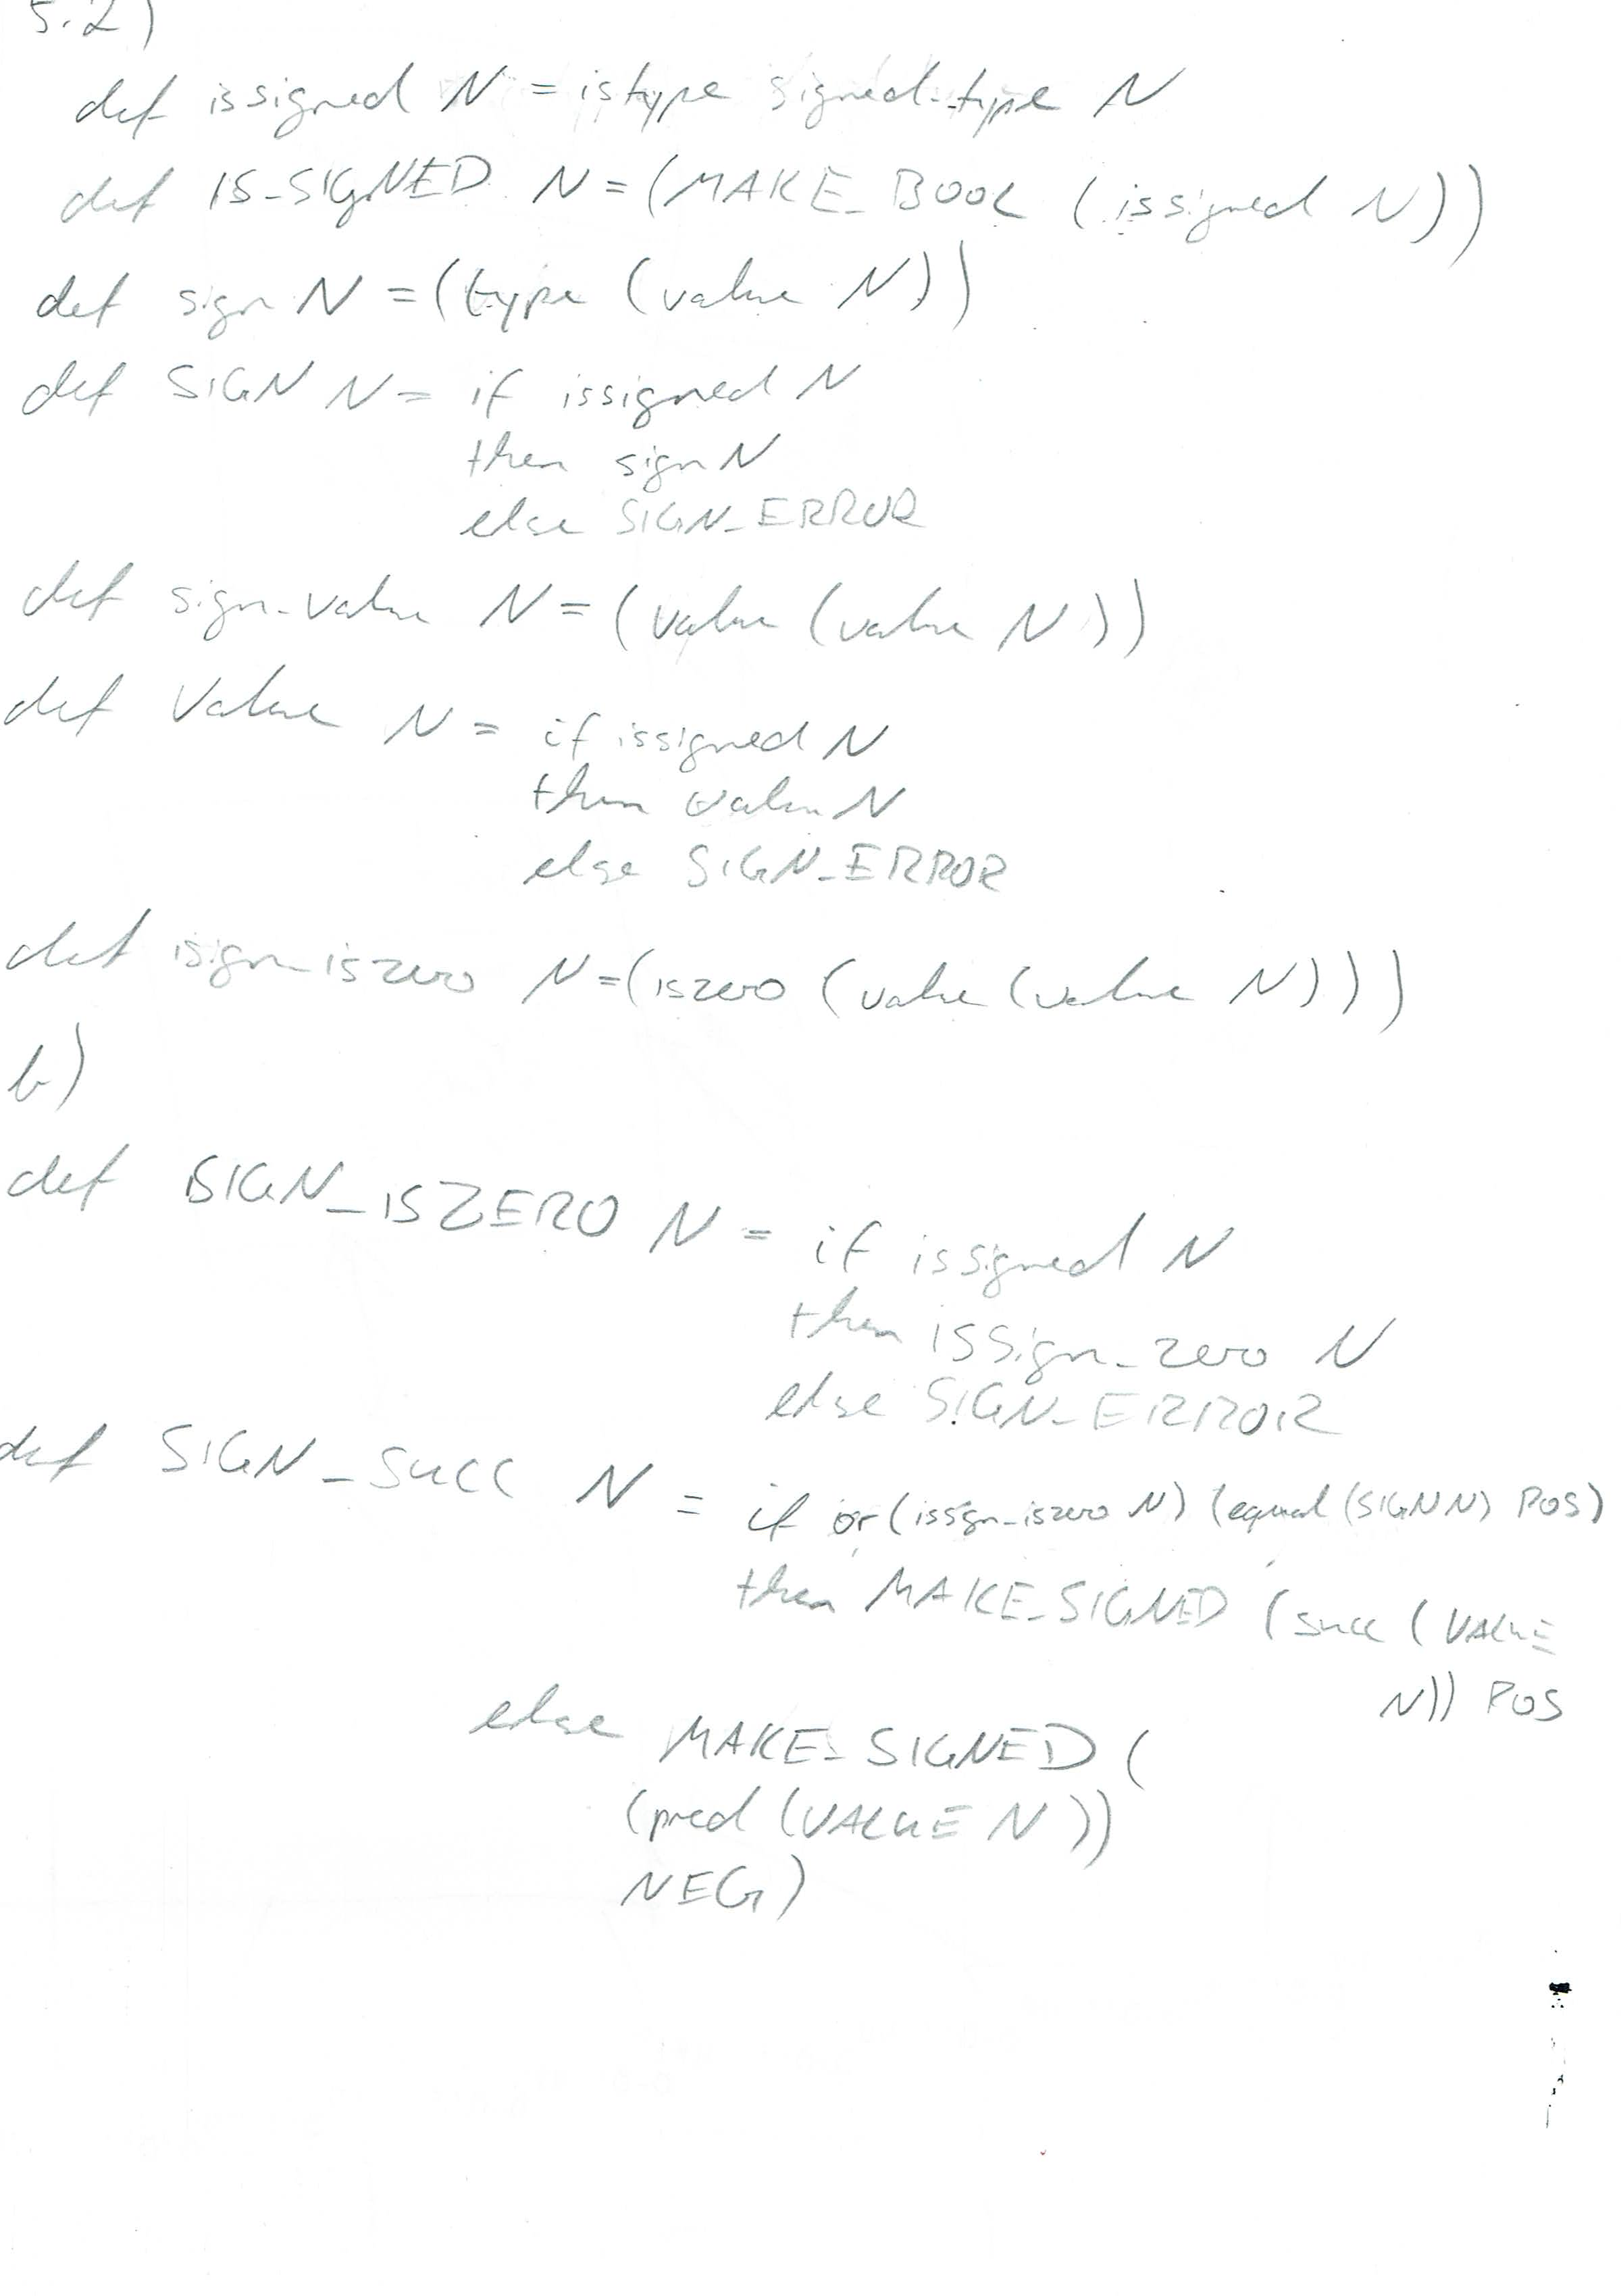 5.2)
def issigned N = istype signed_type N
def IS_SIGNED N = (MAKE_BOOL (issigned N))
def sign N = (type (value N))
def SIGN N = if issigned N
then sign N
else SIGN_ERROR
def sign_value N = (value (value N))
def Value N = if issigned N
then value N
else SIGN_ERROR
def isign_iszero N = (iszero (value (value N)))
b)
def SIGN_ISZERO N = if issigned N
then issign_zero N
else SIGN_ERROR
def SIGN_SUCC N = if or (issign_iszero N) (equal (SIGN N) POS)
then MAKE_SIGNED (succ (VALUE
N)) POS
else MAKE_SIGNED (
(pred (VALUE N))
NEG)